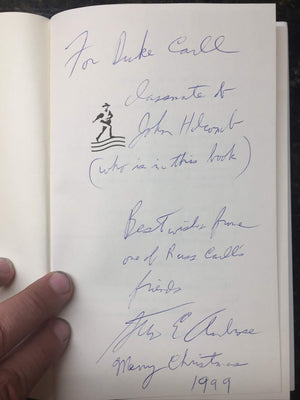 For Duke Carll
classmate to
John Holcomb
(who is in this book)
Best wishes from
one of Russ Carll's
friends
E Ambrose
Merry Christmas
1999